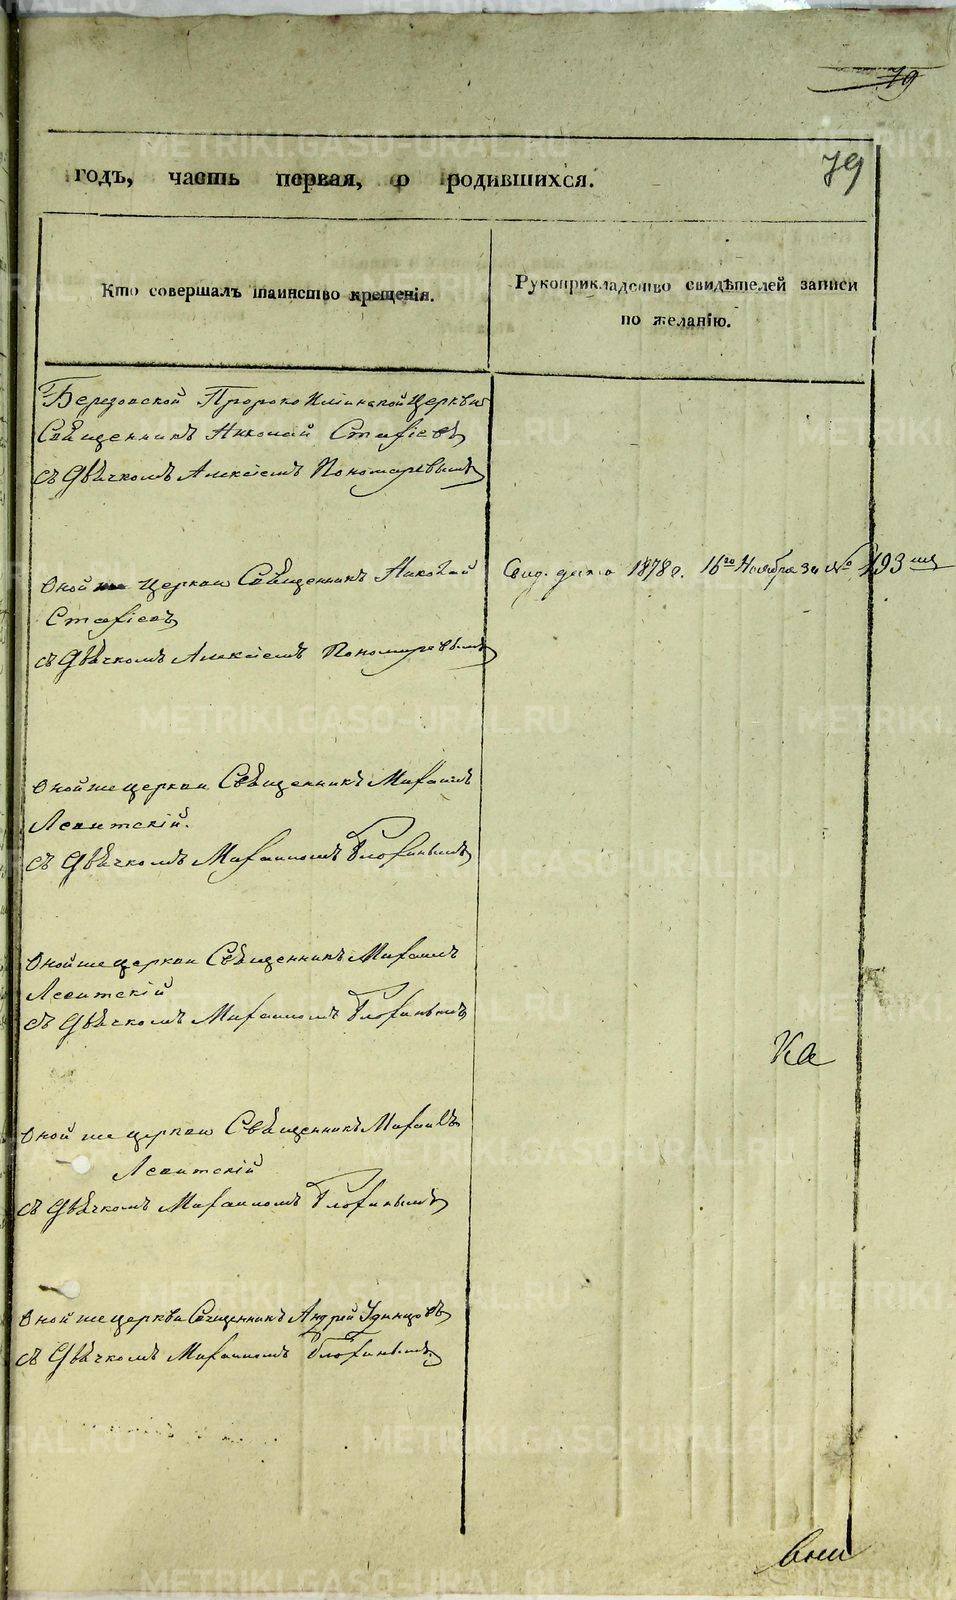 79
годъ, часть первая, о родившихся.
79
Кто совершалъ таинство крещенія.
Рукоприкладство свидѣтелей записи
по желанію.
Березовской Пророко Ильинской Церкви
Священникъ Николай Стафіевъ
съ Дьячкомъ Алексіемъ Пономаревымъ
Оной же церкви Священникъ Николай
Стафіевъ
съ Дьячкомъ Алексіемъ Пономаревымъ
Свид. дано 1878 г. 16го Ноября за №
Оной же церкви Священникъ Михаилъ
Левитскій.
съ Дьячкомъ Михаиломъ
Оной же церкви Священникъ Михаилъ
Левитскій
съ Дьячкомъ Михаиломъ
Ка
Оной же церкви Священникъ Михаилъ
Левитскій
съ Дьячкомъ Михаиломъ
Оной же церкви Священникъ Андрей Удинцовъ
съ Дьячкомъ Михаиломъ
METRIKI.GASO-URAL.RU